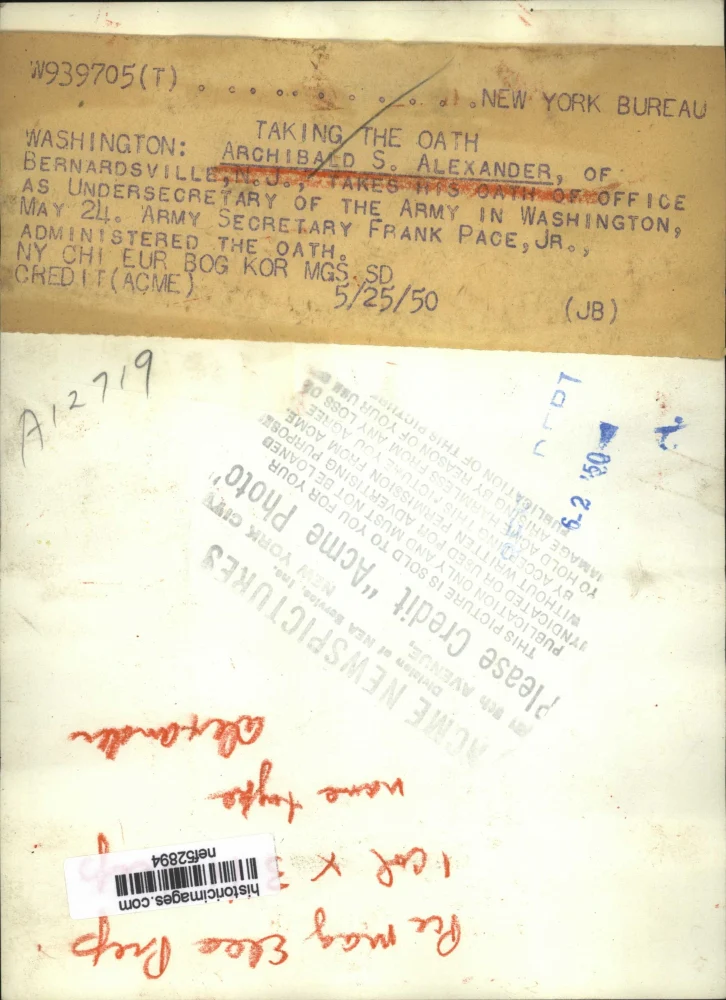 W939705(T) . . . . . . . . . . . . NEW YORK BUREAU
TAKING THE OATH
WASHINGTON: ARCHIBALD S. ALEXANDER, OF
BERNARDSVILLE, N.J., TAKES HIS OATH OF OFFICE
AS UNDERSECRETARY OF THE ARMY IN WASHINGTON,
MAY 24. ARMY SECRETARY FRANK PACE, JR.,
ADMINISTERED THE OATH.
NY CHI EUR BOG KOR MGS SD
CREDIT (ACME) 5/25/50 (JB)
A12719
DEPT
6-2 '50
THIS PICTURE IS SOLD TO YOU FOR YOUR
PUBLICATION ONLY AND MUST NOT BE LOANED
SYNDICATED OR USED FOR ADVERTISING PURPOSE
WITHOUT WRITTEN PERMISSION FROM ACME.
BY ACCEPTING THIS PICTURE YOU AGREE
TO HOLD ACME HARMLESS FROM ANY LOSS OR
DAMAGE ARISING BY REASON OF YOUR USE
PUBLICATION OF THIS PICTURE
Please Credit "Acme Photo"
ACME NEWSPICTURES
Division of NEA Service, Inc.
8th AVENUE, NEW YORK CITY
mag
1 col x 3
name type
Alexander
historicimages.com
nef52894